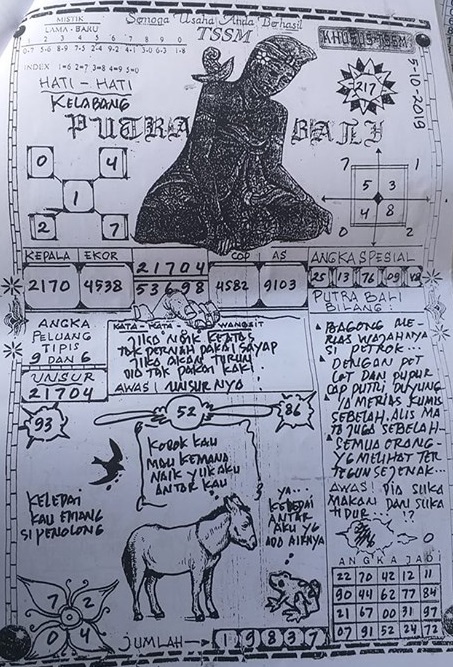 Semoga Usaha Anda Berhasil
MISTIK
LAMA - BARU
1 2 3 4 5 6 7 8 9 0
0-7 5-6 8-9 7-5 2-4 9-2 4-1 3-0 6-3 1-8
INDEX 1=6 2=7 3=8 4=9 5=0
TSSM
KHUSUS TSSM
5-10-2019
217
HATI - HATI
KELABANG
PUTRA BALI
0 4
1
2 7
7 1
5 3
4 8
0 2
KEPALA EKOR
2170 4538
21704
53698
COP AS
4582 9103
ANGKA SPESIAL
25 13 76 09 48
ANGKA
PELUANG
TIPIS
9 DAN 6
UNSUR
21704
KATA - KATA WANGSIT
JIKA NAIK KEATAS
TAK PERNAH PAKAI SAYAP
JIKA AKAN TURUN
DIA TAK PAKAI KAKI
AWAS! UNSURNYA
PUTRA BALI
BILANG:
BAGONG ME-
RIAS WAJAHNYA
SI PETROK...
DENGAN POT
LOT DAN PUPUR
CAP PUTRI DUYUNG
YA MERIAS KUMIS
SEBELAH. ALIS MA
TA JUGA SEBELAH-
SEMUA ORANG-
YG MELIHAT TER
TEGUN SEJENAK...
AWAS! DIA SUKA
MAKAN DAN SUKA
TIDUR...!?
93
52
86
KODOK KAU
MAU KEMANA
NAIK YUK AKU
ANTAR KAU
KELEDAI
KAU EMANG
SI PENOLONG
YA...
KELEDAI
ANTAR
AKU YG
ADA AIRNYA
0
7 2
0 4
JUMLAH 19837
ANGKA JADI
22 70 42 12 11
90 44 62 77 84
21 67 00 31 97
07 91 52 24 72